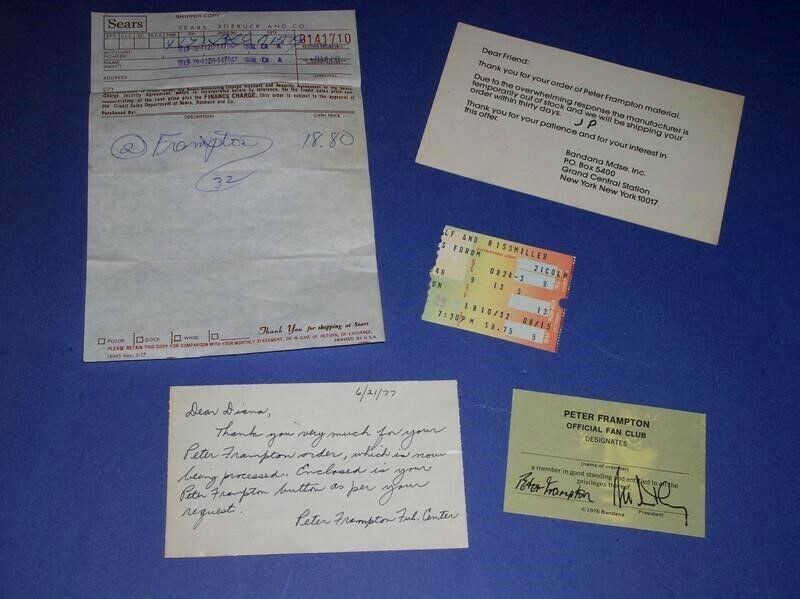 SHIPPER COPY
Sears
SEARS, ROEBUCK AND CO.
0141710
ACCOUNT NUMBER
NAME (PRINT)
ADDRESS
Charge Security Agreement, if any. This order is subject to the approval of
the Credit Sales Department of Sears, Roebuck and Co.
Purchased By:
DESCRIPTION
CASH PRICE
② Frampton 18.80
32
Thank You for shopping at Sears
FLOOR DOCK WHSE.
PLEASE RETAIN THIS COPY FOR COMPARISON WITH YOUR MONTHLY STATEMENT, OR IN CASE OF RETURN, OR EXCHANGE.
PRINTED IN U.S.A.
Dear Friend:
Thank you for your order of Peter Frampton material.
Due to the overwhelming response the manufacturer is
temporarily out of stock and we will be shipping your
order within thirty days.
Thank you for your patience and for your interest in
this offer.
Bandana Mdse. Inc.
P.O. Box 5400
Grand Central Station
New York New York 10017
LF AND RISSMILLER
S FORUM 21COLM
46 0824-3 8
9 13 5
ON 13
1810/32 08/15
7:30PM $8.75 5
6/21/77
Dear Diana,
Thank you very much for your
Peter Frampton order, which is now
being processed. Enclosed is your
Peter Frampton button as per your
request.
Peter Frampton Ful. Center
PETER FRAMPTON
OFFICIAL FAN CLUB
DESIGNATES
(name of member)
a member in good standing and entitled to all the
privileges thereof.
Peter Frampton
© 1976 Bandana President